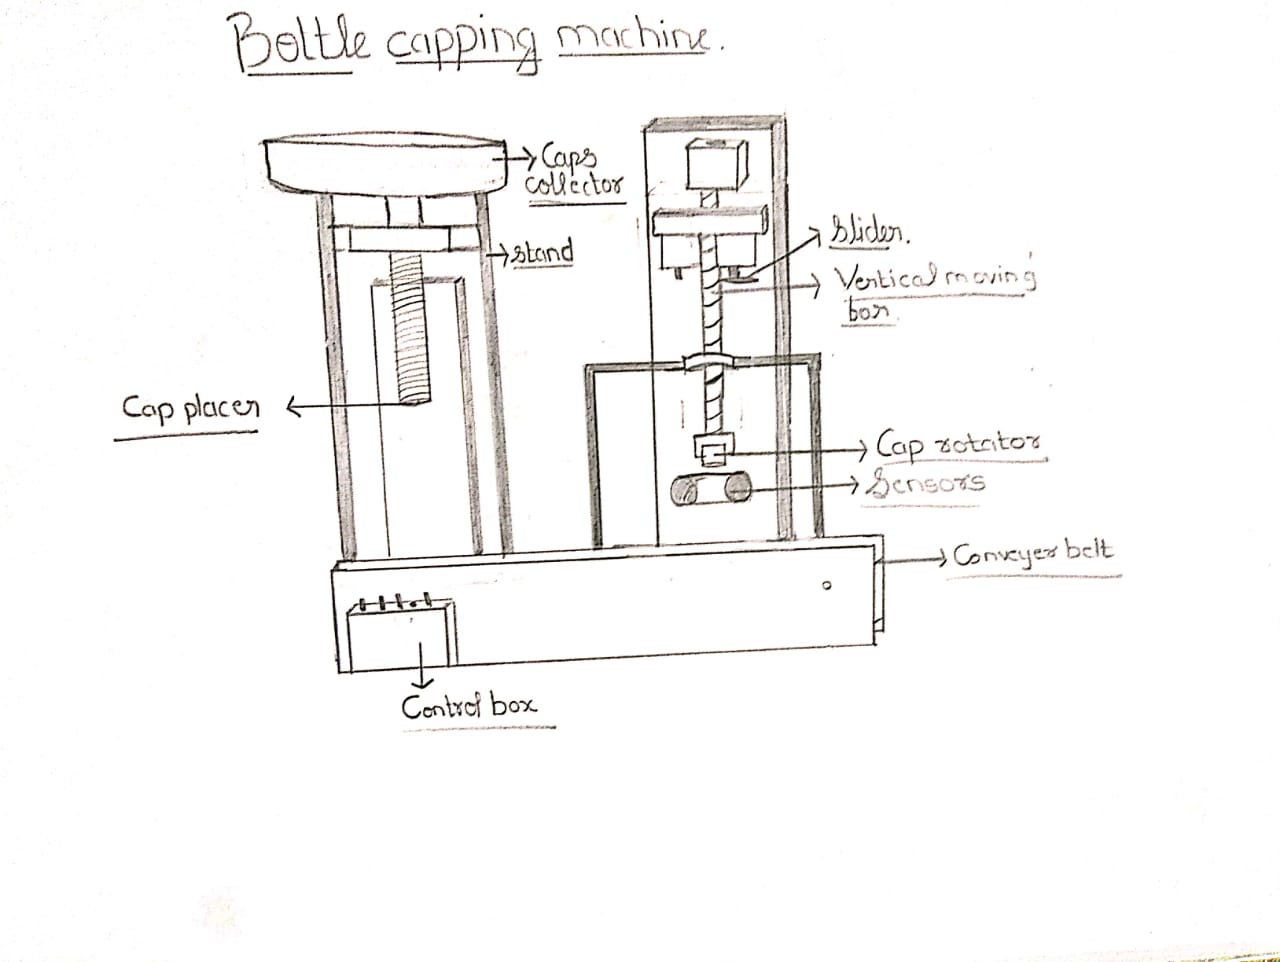 Bottle capping machine.
Caps
collector
Slider.
Stand
Vertical moving
box.
Cap placer
Cap rotator
Sensors
Conveyer belt
Control box